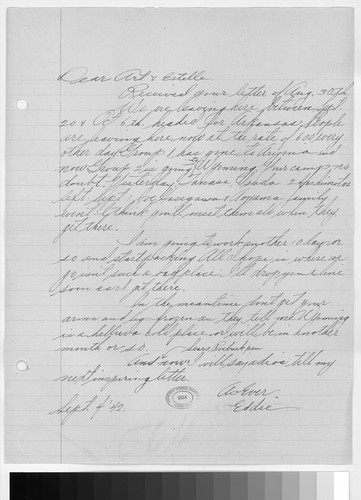 Dear Art & Estelle
Received your letter of Aug. 30th.
We are leaving here, between Sept.
20 & Oct 6th headed for Arkansas, people
are leaving here now at the rate of 600 every
other day. Group 1 has gone to Arizona and
now Group 2 is going to Wyoming, your camp no
doubt. Yesterday,
left Sept. family
went. I think you'll meet them all when they
get there.
I am going to work another 10 days or
so and start packing. All I hope is where we
go isn't such a bad place. I'll drop you a line
soon as I get there.
In the meantime don't get your
arms and leg frozen as they tell me Wyoming
is a helluva cold place or will be in another
month or so.
And now will say adios till my
next inspiring letter.
As Ever
Eddie
Sept. 4 '42